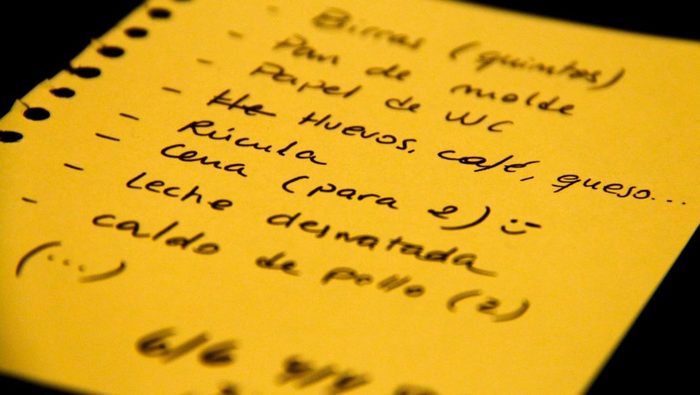 - Birras (quintos)
- Pan de molde
- Papel de WC
- Huevos, café, queso...
- Rúcula
- Cena (para 2) :)
- Leche desnatada
- caldo de pollo (2)
(...)
6/6 4/4